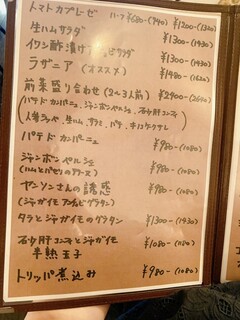 トマトカプレーゼ ハーフ¥680-(740) ¥1200-(1320)
生ハムサラダ ¥1300-(1430)
イワシ酢漬け サラダ ¥1300-(1430)
ラザニア (オススメ) ¥1480-(1620)
前菜盛り合わせ (2~3人前) ¥2400-
(パテドカンパーニュ、ジャンボンペルシェ、砂肝コンフィ
人参ラペ、生ハム、サラミ、パテ、
パテドカンパーニュ ¥980-(1080)
ジャンボンペルシェ ¥980-(1080)
(ハムとパセリのテリーヌ)
ヤンソンさんの誘惑 ¥980-(1080)
(ジャガイモアンチョビグラタン)
タラとジャガイモのグラタン ¥1300-(1430)
砂肝コンフィとジャガイモ ¥1080-(1180)
半熟玉子
トリッパ煮込み ¥980-(1080)